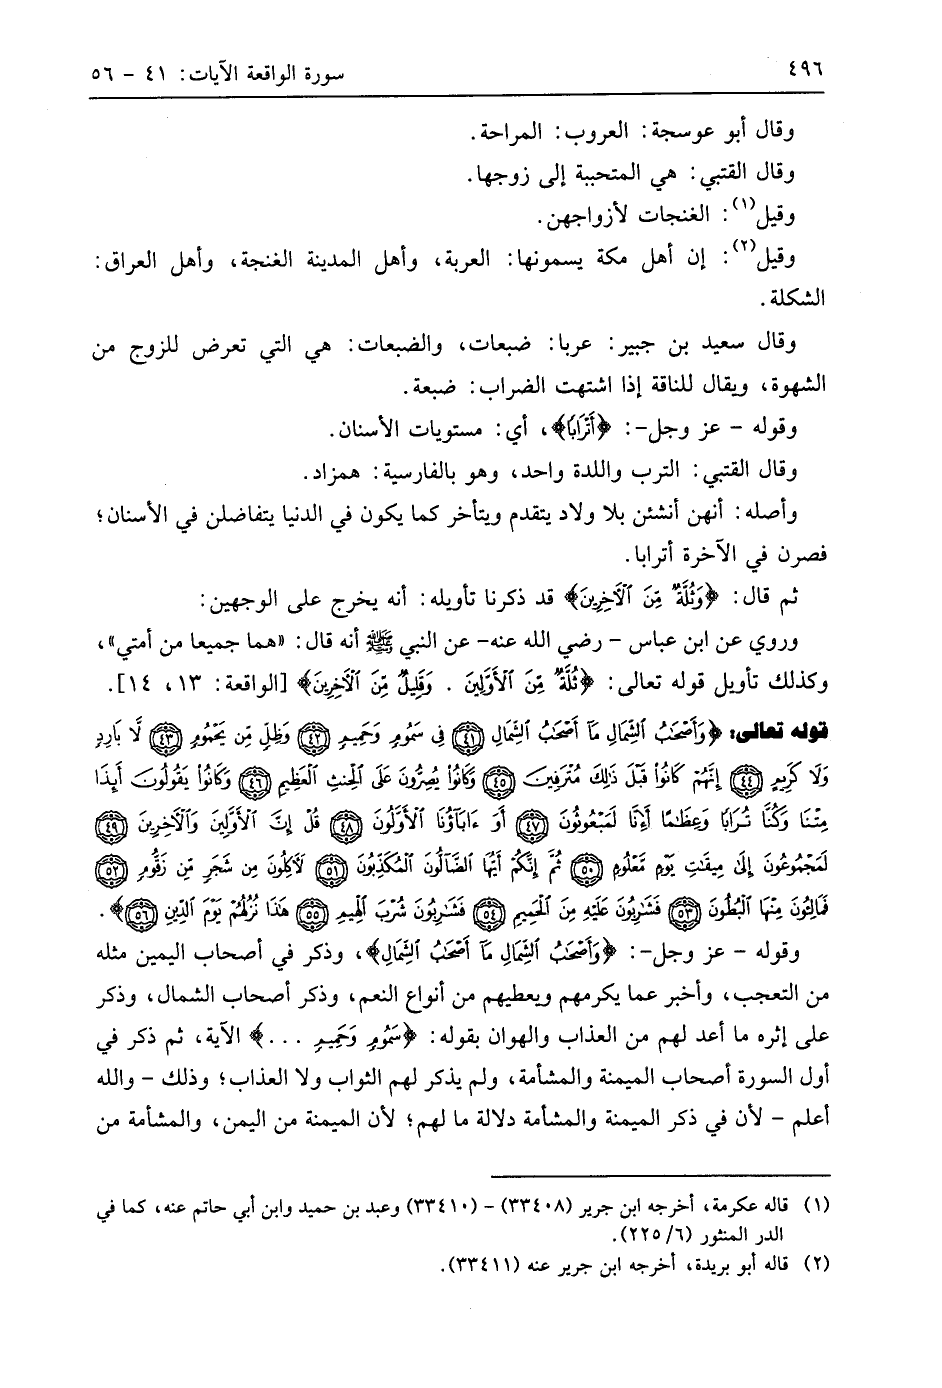 ٤٩٦ سورة الواقعة الآيات: ٤١ - ٥٦
وقال أبو عوسجة: العروب: المراحة.
وقال القتبي: هي المتحببة إلى زوجها.
وقيل(١): الغنجات لأزواجهن.
وقيل(٢): إن أهل مكة يسمونها: العربة، وأهل المدينة الغنجة، وأهل العراق:
الشكلة.
وقال سعيد بن جبير: عربا: ضبعات، والضبعات: هي التي تعرض للزوج من
الشهوة، ويقال للناقة إذا اشتهت الضراب: ضبعة.
وقوله - عز وجل-: ﴿أَتْرَابًا﴾، أي: مستويات الأسنان.
وقال القتبي: الترب واللدة واحد، وهو بالفارسية: همزاد.
وأصله: أنهن أنشئن بلا ولاد يتقدم ويتأخر كما يكون في الدنيا يتفاضلن في الأسنان؛
فصرن في الآخرة أترابا.
ثم قال: ﴿وَثُلَّةٌ مِّنَ ٱلْآخِرِينَ﴾ قد ذكرنا تأويله: أنه يخرج على الوجهين:
وروي عن ابن عباس - رضي الله عنه- عن النبي ﷺ أنه قال: «هما جميعا من أمتي»،
وكذلك تأويل قوله تعالى: ﴿ثُلَّةٌ مِّنَ ٱلْأَوَّلِينَ . وَقَلِيلٌ مِّنَ ٱلْآخِرِينَ﴾ [الواقعة: ١٣، ١٤].
قوله تعالى: ﴿وَأَصْحَٰبُ ٱلشِّمَالِ مَآ أَصْحَٰبُ ٱلشِّمَالِ ﴿٤١﴾ فِى سَمُومٍ وَحَمِيمٍ ﴿٤٢﴾ وَظِلٍّ مِّن يَحْمُومٍ ﴿٤٣﴾ لَّا بَارِدٍ
وَلَا كَرِيمٍ ﴿٤٤﴾ إِنَّهُمْ كَانُوا۟ قَبْلَ ذَٰلِكَ مُتْرَفِينَ ﴿٤٥﴾ وَكَانُوا۟ يُصِرُّونَ عَلَى ٱلْحِنثِ ٱلْعَظِيمِ ﴿٤٦﴾ وَكَانُوا۟ يَقُولُونَ أَئِذَا
مِتْنَا وَكُنَّا تُرَابًا وَعِظَٰمًا أَءِنَّا لَمَبْعُوثُونَ ﴿٤٧﴾ أَوَ ءَابَآؤُنَا ٱلْأَوَّلُونَ ﴿٤٨﴾ قُلْ إِنَّ ٱلْأَوَّلِينَ وَٱلْآخِرِينَ ﴿٤٩﴾
لَمَجْمُوعُونَ إِلَىٰ مِيقَٰتِ يَوْمٍ مَّعْلُومٍ ﴿٥٠﴾ ثُمَّ إِنَّكُمْ أَيُّهَا ٱلضَّآلُّونَ ٱلْمُكَذِّبُونَ ﴿٥١﴾ لَآكِلُونَ مِن شَجَرٍ مِّن زَقُّومٍ ﴿٥٢﴾
فَمَالِـُٔونَ مِنْهَا ٱلْبُطُونَ ﴿٥٣﴾ فَشَٰرِبُونَ عَلَيْهِ مِنَ ٱلْحَمِيمِ ﴿٥٤﴾ فَشَٰرِبُونَ شُرْبَ ٱلْهِيمِ ﴿٥٥﴾ هَٰذَا نُزُلُهُمْ يَوْمَ ٱلدِّينِ ﴿٥٦﴾﴾.
وقوله - عز وجل-: ﴿وَأَصْحَٰبُ ٱلشِّمَالِ مَآ أَصْحَٰبُ ٱلشِّمَالِ﴾، وذكر في أصحاب اليمين مثله
من التعجب، وأخبر عما يكرمهم ويعطيهم من أنواع النعم، وذكر أصحاب الشمال، وذكر
على إثره ما أعد لهم من العذاب والهوان بقوله: ﴿سَمُومٍ وَحَمِيمٍ ...﴾ الآية، ثم ذكر في
أول السورة أصحاب الميمنة والمشأمة، ولم يذكر لهم الثواب ولا العذاب؛ وذلك - والله
أعلم - لأن في ذكر الميمنة والمشأمة دلالة ما لهم؛ لأن الميمنة من اليمن، والمشأمة من
(١) قاله عكرمة، أخرجه ابن جرير (٣٣٤٠٨) - (٣٣٤١٠) وعبد بن حميد وابن أبي حاتم عنه، كما في
الدر المنثور (٦/ ٢٢٥).
(٢) قاله أبو بريدة، أخرجه ابن جرير عنه (٣٣٤١١).